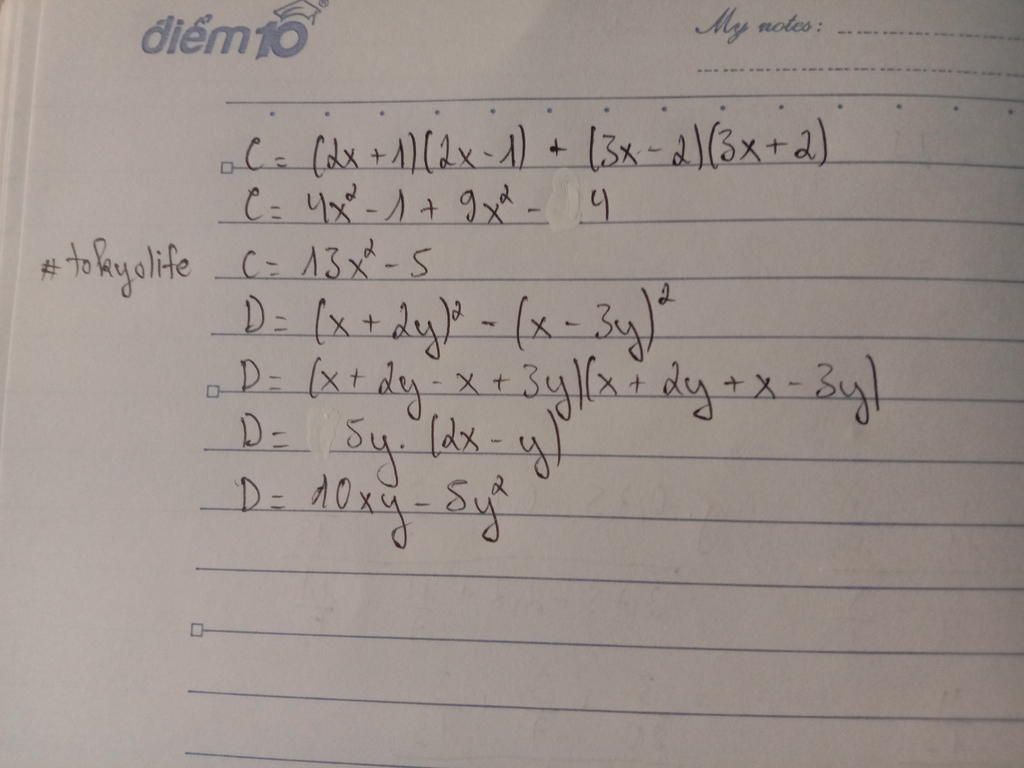 điểm 10
My notes:
C = (2x + 1)(2x - 1) + (3x - 2)(3x + 2)
C = 4x² - 1 + 9x² - 4
#tokyolife
C = 13x² - 5
D = (x + 2y)² - (x - 3y)²
D = (x + 2y - x + 3y)(x + 2y + x - 3y)
D = 5y. (2x - y)
D = 10xy - 5y²